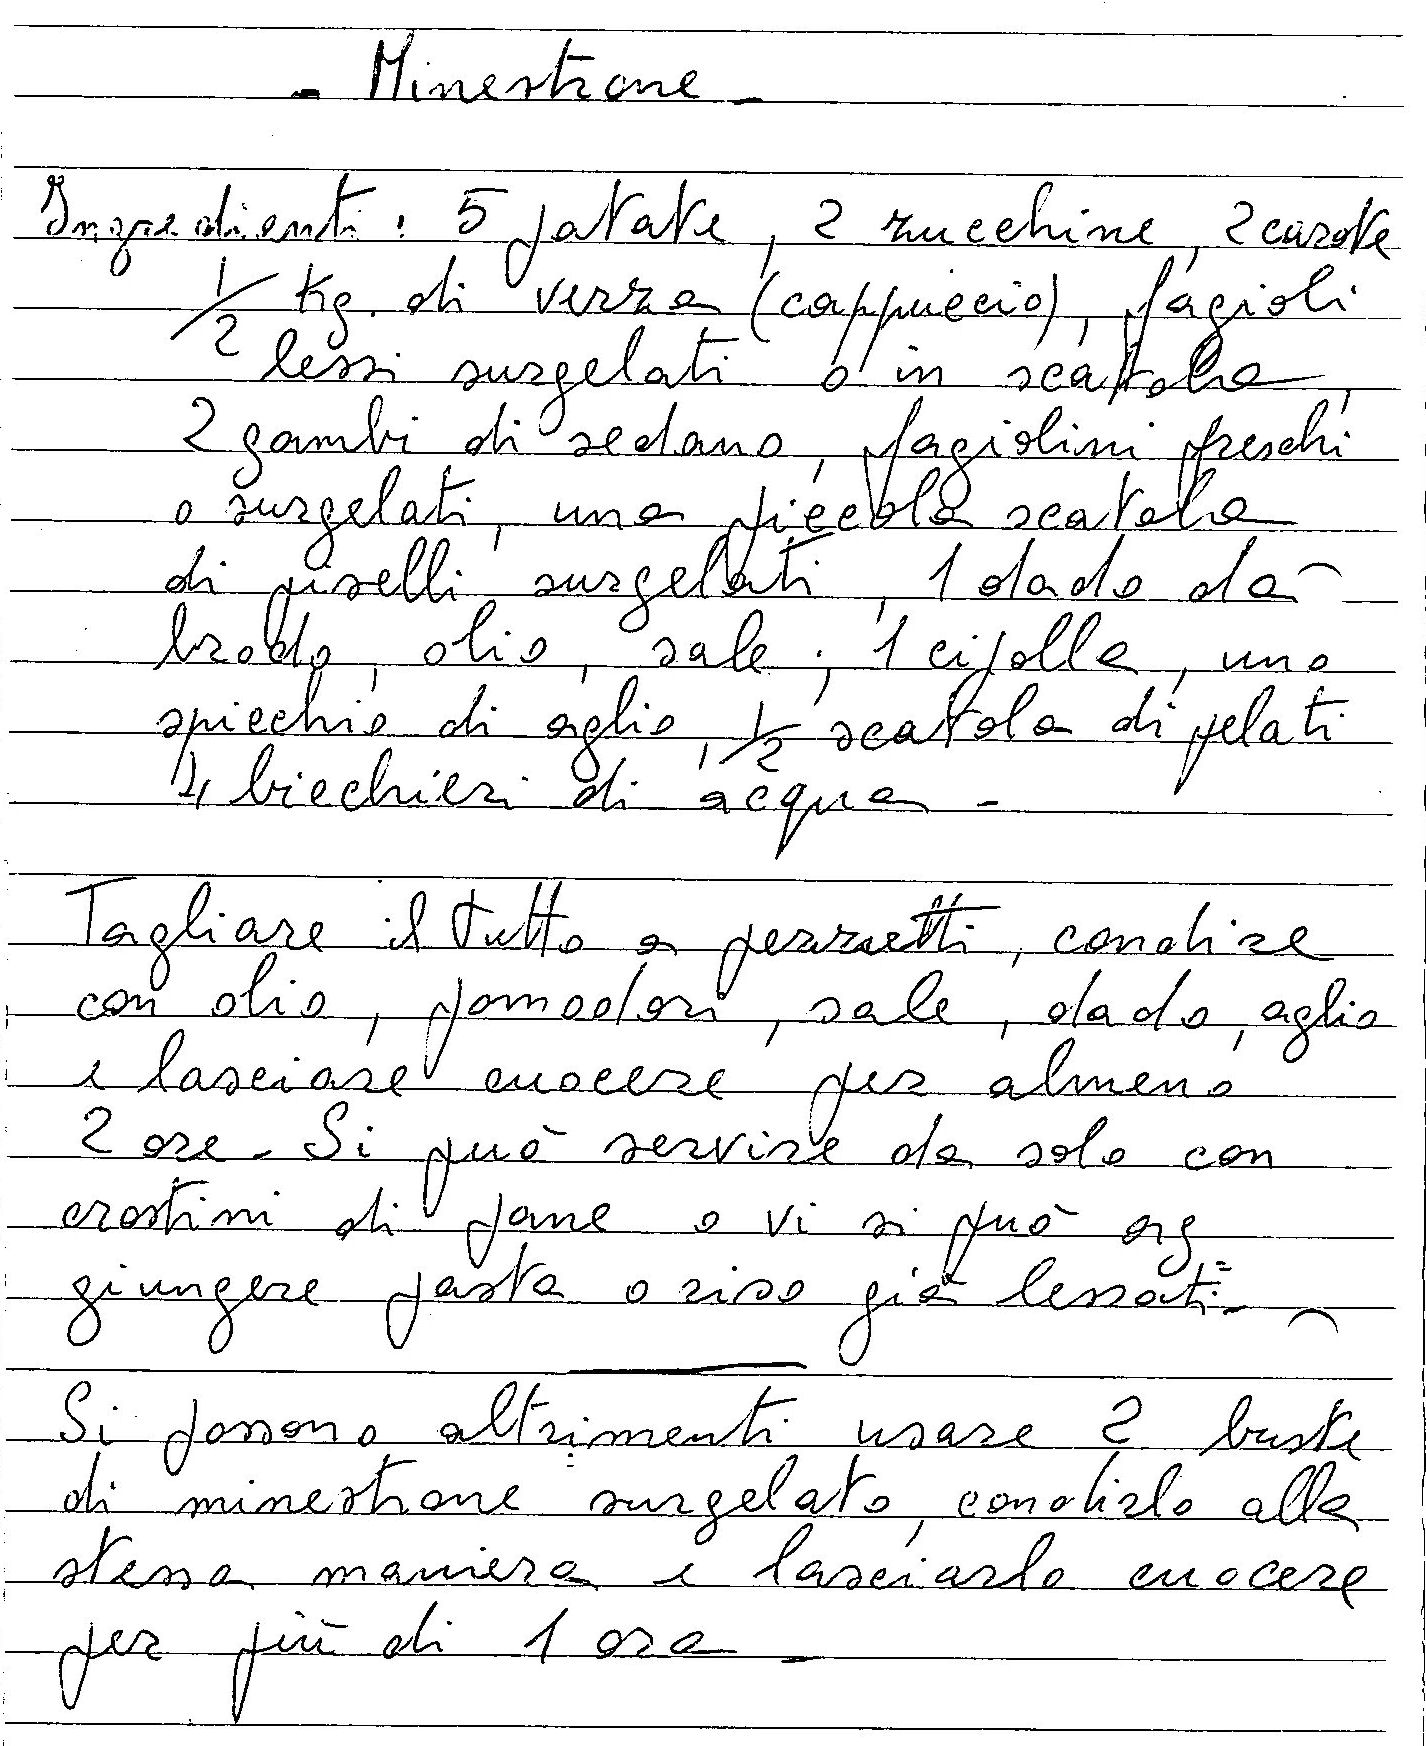 - Minestrone -
Ingredienti: 5 patate, 2 zucchine, 2 carote
1/2 Kg. di verza (cappuccio), fagioli
lessi surgelati o in scatola,
2 gambi di sedano, fagiolini freschi
o surgelati, una piccola scatola
di piselli surgelati, 1 dado da
brodo, olio, sale, 1 cipolla, uno
spicchio di aglio, 1/2 scatola di pelati
4 bicchieri di acqua -
Tagliare il tutto a pezzetti, condire
con olio, pomodori, sale, dado, aglio
e lasciare cuocere per almeno
2 ore. Si può servire da solo con
crostini di pane o vi si può ag=
giungere pasta o riso già lessati -
Si possono altrimenti usare 2 buste
di minestrone surgelato, condirlo alla
stessa maniera e lasciarlo cuocere
per più di 1 ora -